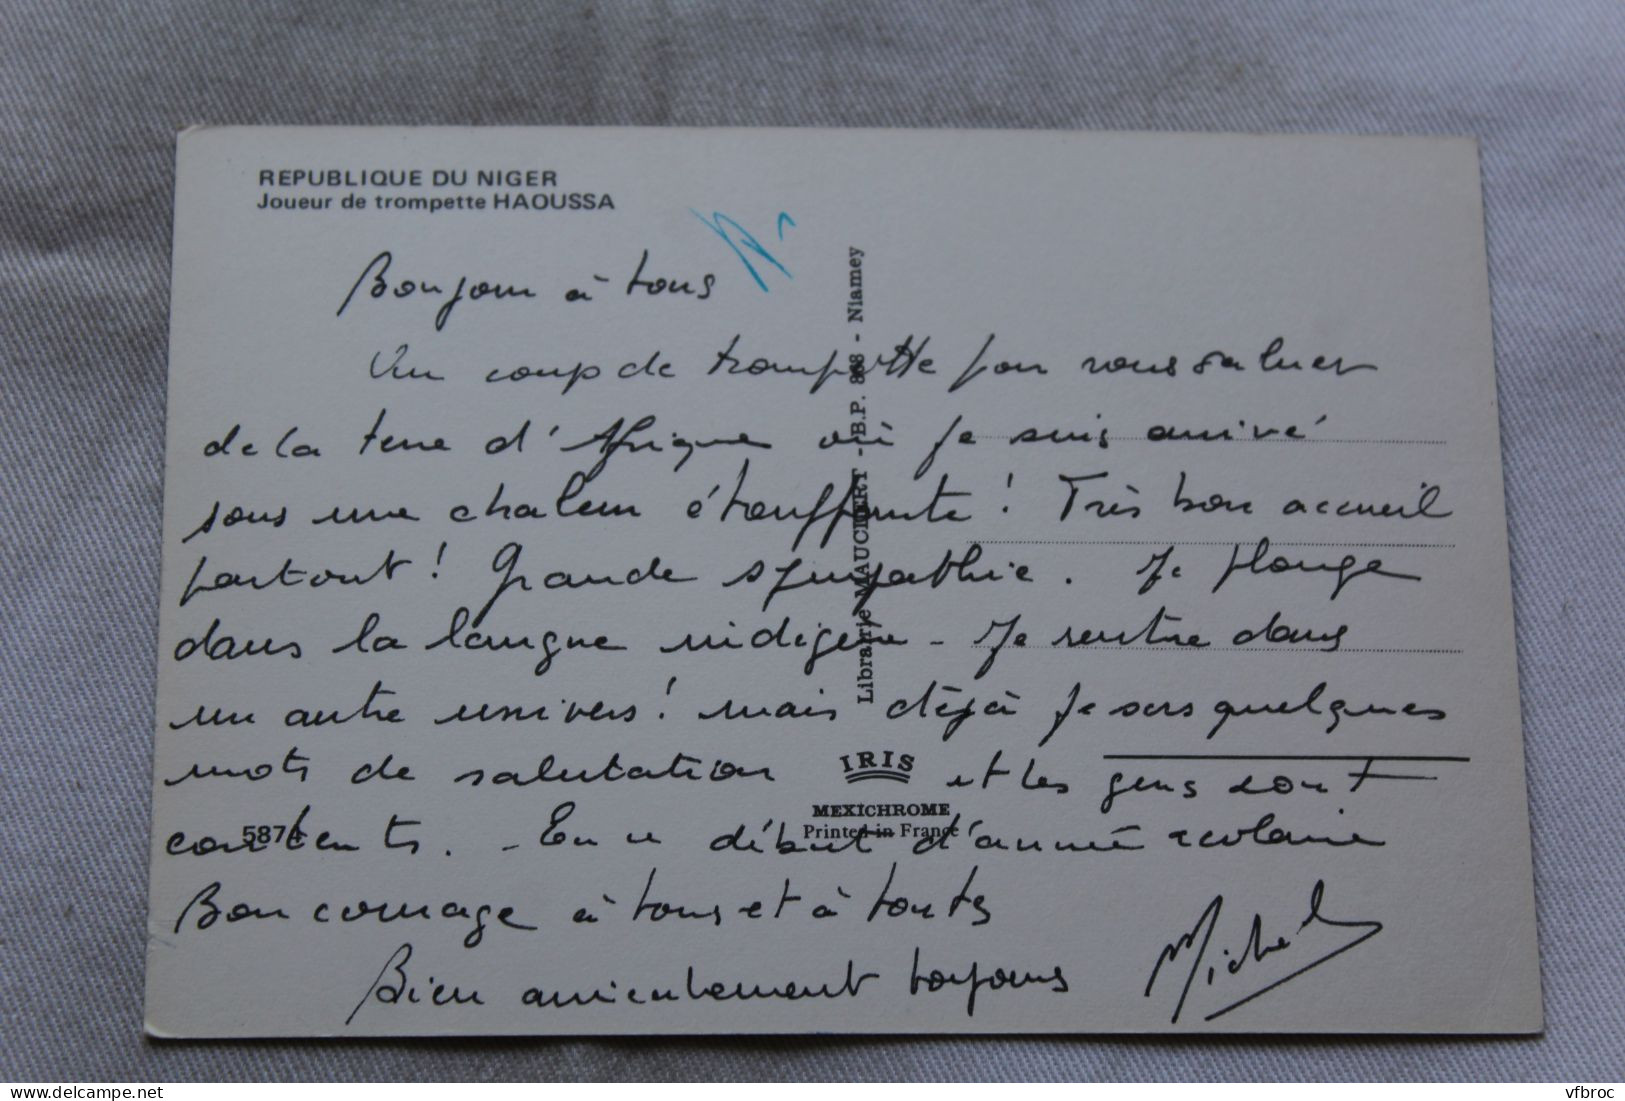 REPUBLIQUE DU NIGER
Joueur de trompette HAOUSSA
Bonjour à tous
Un coup de trompette pour vous saluer
de la terre d'Afrique où je suis arrivé
sous une chaleur étouffante ! Très bon accueil
partout ! Grande sympathie. Je plonge
dans la langue indigène - Je rentre dans
un autre univers ! mais déjà je sais quelques
mots de salutation et les gens sont
contents. - En ce début d'année scolaire
Bon courage à tous et à toutes
Bien amicalement toujours
Michel
Librairie MAUCLERT - B.P. 868 - Niamey
IRIS
MEXICHROME
Printed in France
5874
delcampe.net
vfbroc